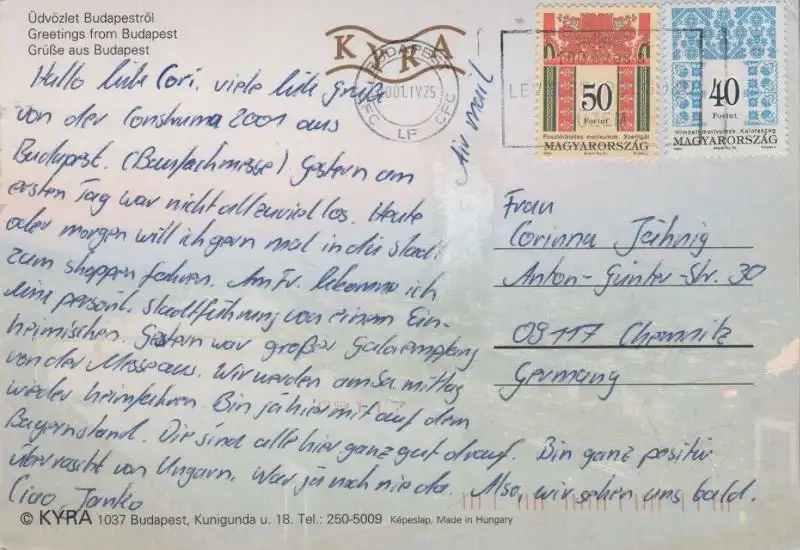 Üdvözlet Budapestről
Greetings from Budapest
Grüße aus Budapest
KYRA
BUDAPEST
2001.IV.25
LF
50
Forint
MAGYARORSZÁG
40
Forint
MAGYARORSZÁG
Air mail
Hallo liebe Cori, viele liebe Grüße
von der Construma 2001 aus
Budapest. (Baufachmesse) Gestern am
ersten Tag war nicht allzuviel los. Heute
oder morgen will ich gern mal in die Stadt
zum shoppen fahren. Am Fr. bekomme ich
eine persönl. Stadtführung von einem Ein-
heimischen. Gestern war großer Galaempfang
von der Messe aus. Wir werden am Sa. mittag
wieder heimfahren. Bin ja hier mit auf dem
Bayernstand. Die sind alle hier ganz gut drauf. Bin ganz positiv
überrascht von Ungarn. War ja noch nie da. Also, wir sehen uns bald.
Ciao, Janko
Frau
Corinna Jähnig
Anton-Günter-Str. 30
09117 Chemnitz
Germany
© KYRA 1037 Budapest, Kunigunda u. 18. Tel.: 250-5009 Képeslap, Made in Hungary